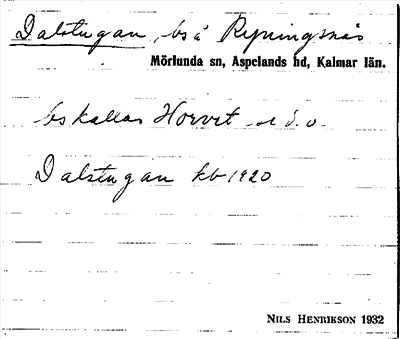 Dalstugan, bs å Ryningsnäs
Mörlunda sn, Aspelands hd, Kalmar län.
bs kallas Horvet
Dalstugan kb 1920
NILS HENRIKSON 1932